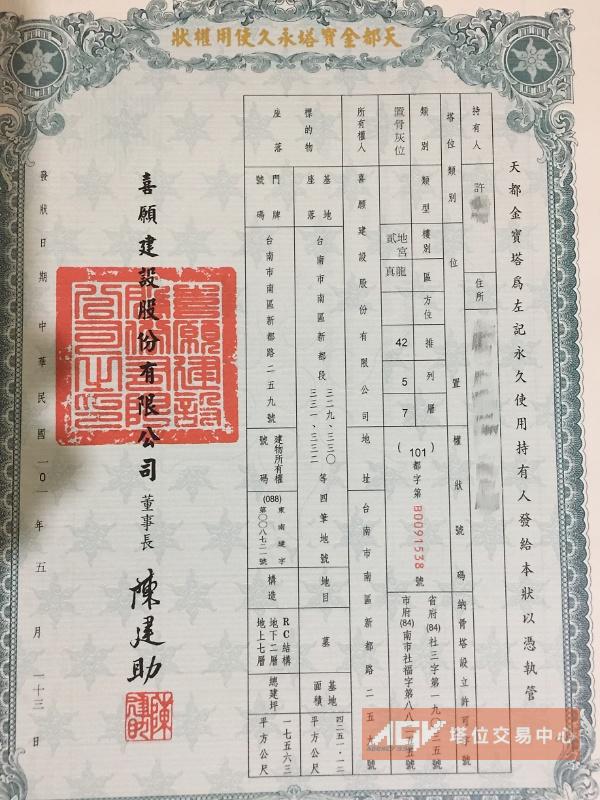 天都金寶塔永久使用權狀
天都金寶塔為左記永久使用持有人發給本狀以憑執管
持有人
許
住所
塔位類別
位置
權狀號碼
納骨塔設立許可字號
類別
類型
樓別
區
方位
排
列
層
置骨灰位
地宮
貳
龍
真
42
5
7
(101)
都字第B0091538號
省府(84)社三字第一九
市府(84)南市社福字第
所有權人
喜願建設股份有限公司
地址
台南市南區新都路二五九號
標的物
座落
基地座落
台南市南區新都段三二九、三三〇
三三一、三三二
等四筆地號
地目
墓
基地面積
四二五一.一二
平方公尺
門牌號碼
台南市南區新都路二五九號
建物所有權
號碼
(088)東南建字
第〇〇八七二一號
構造
RC結構
地下二層
地上七層
總建坪
一七五六三
平方公尺
喜願建設股份有限公司
董事長
陳建助
發狀日期
中華民國一0一年五月二十三日
喜願建設股份有限公司之印
AGV
塔位交易中心